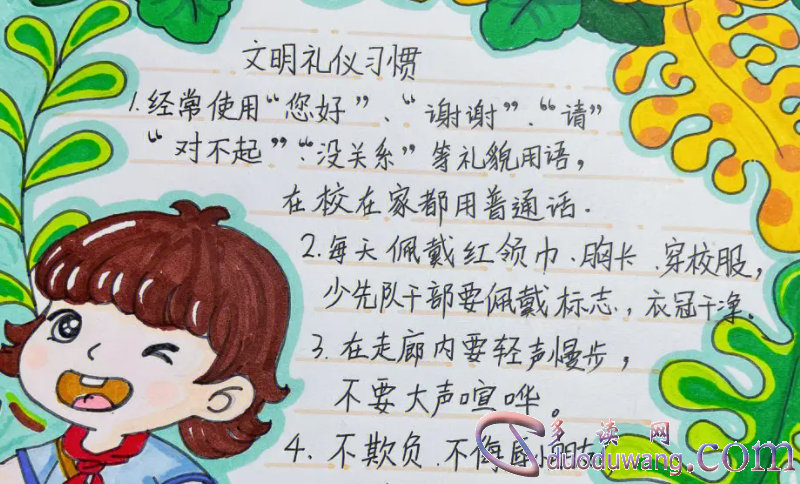 文明礼仪习惯
1.经常使用“您好”、“谢谢”、“请”
“对不起”“没关系”等礼貌用语，
在校在家都用普通话.
2.每天佩戴红领巾、胸长、穿校服，
少先队干部要佩戴标志，衣冠干净。
3.在走廊内要轻声慢步，
不要大声喧哗。
4.不欺负、不侮辱
多读网
duoduwang.com